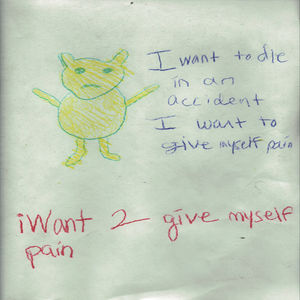 I want to die
in an
accident
I want to
give myself pain
iWant 2 give myself
pain